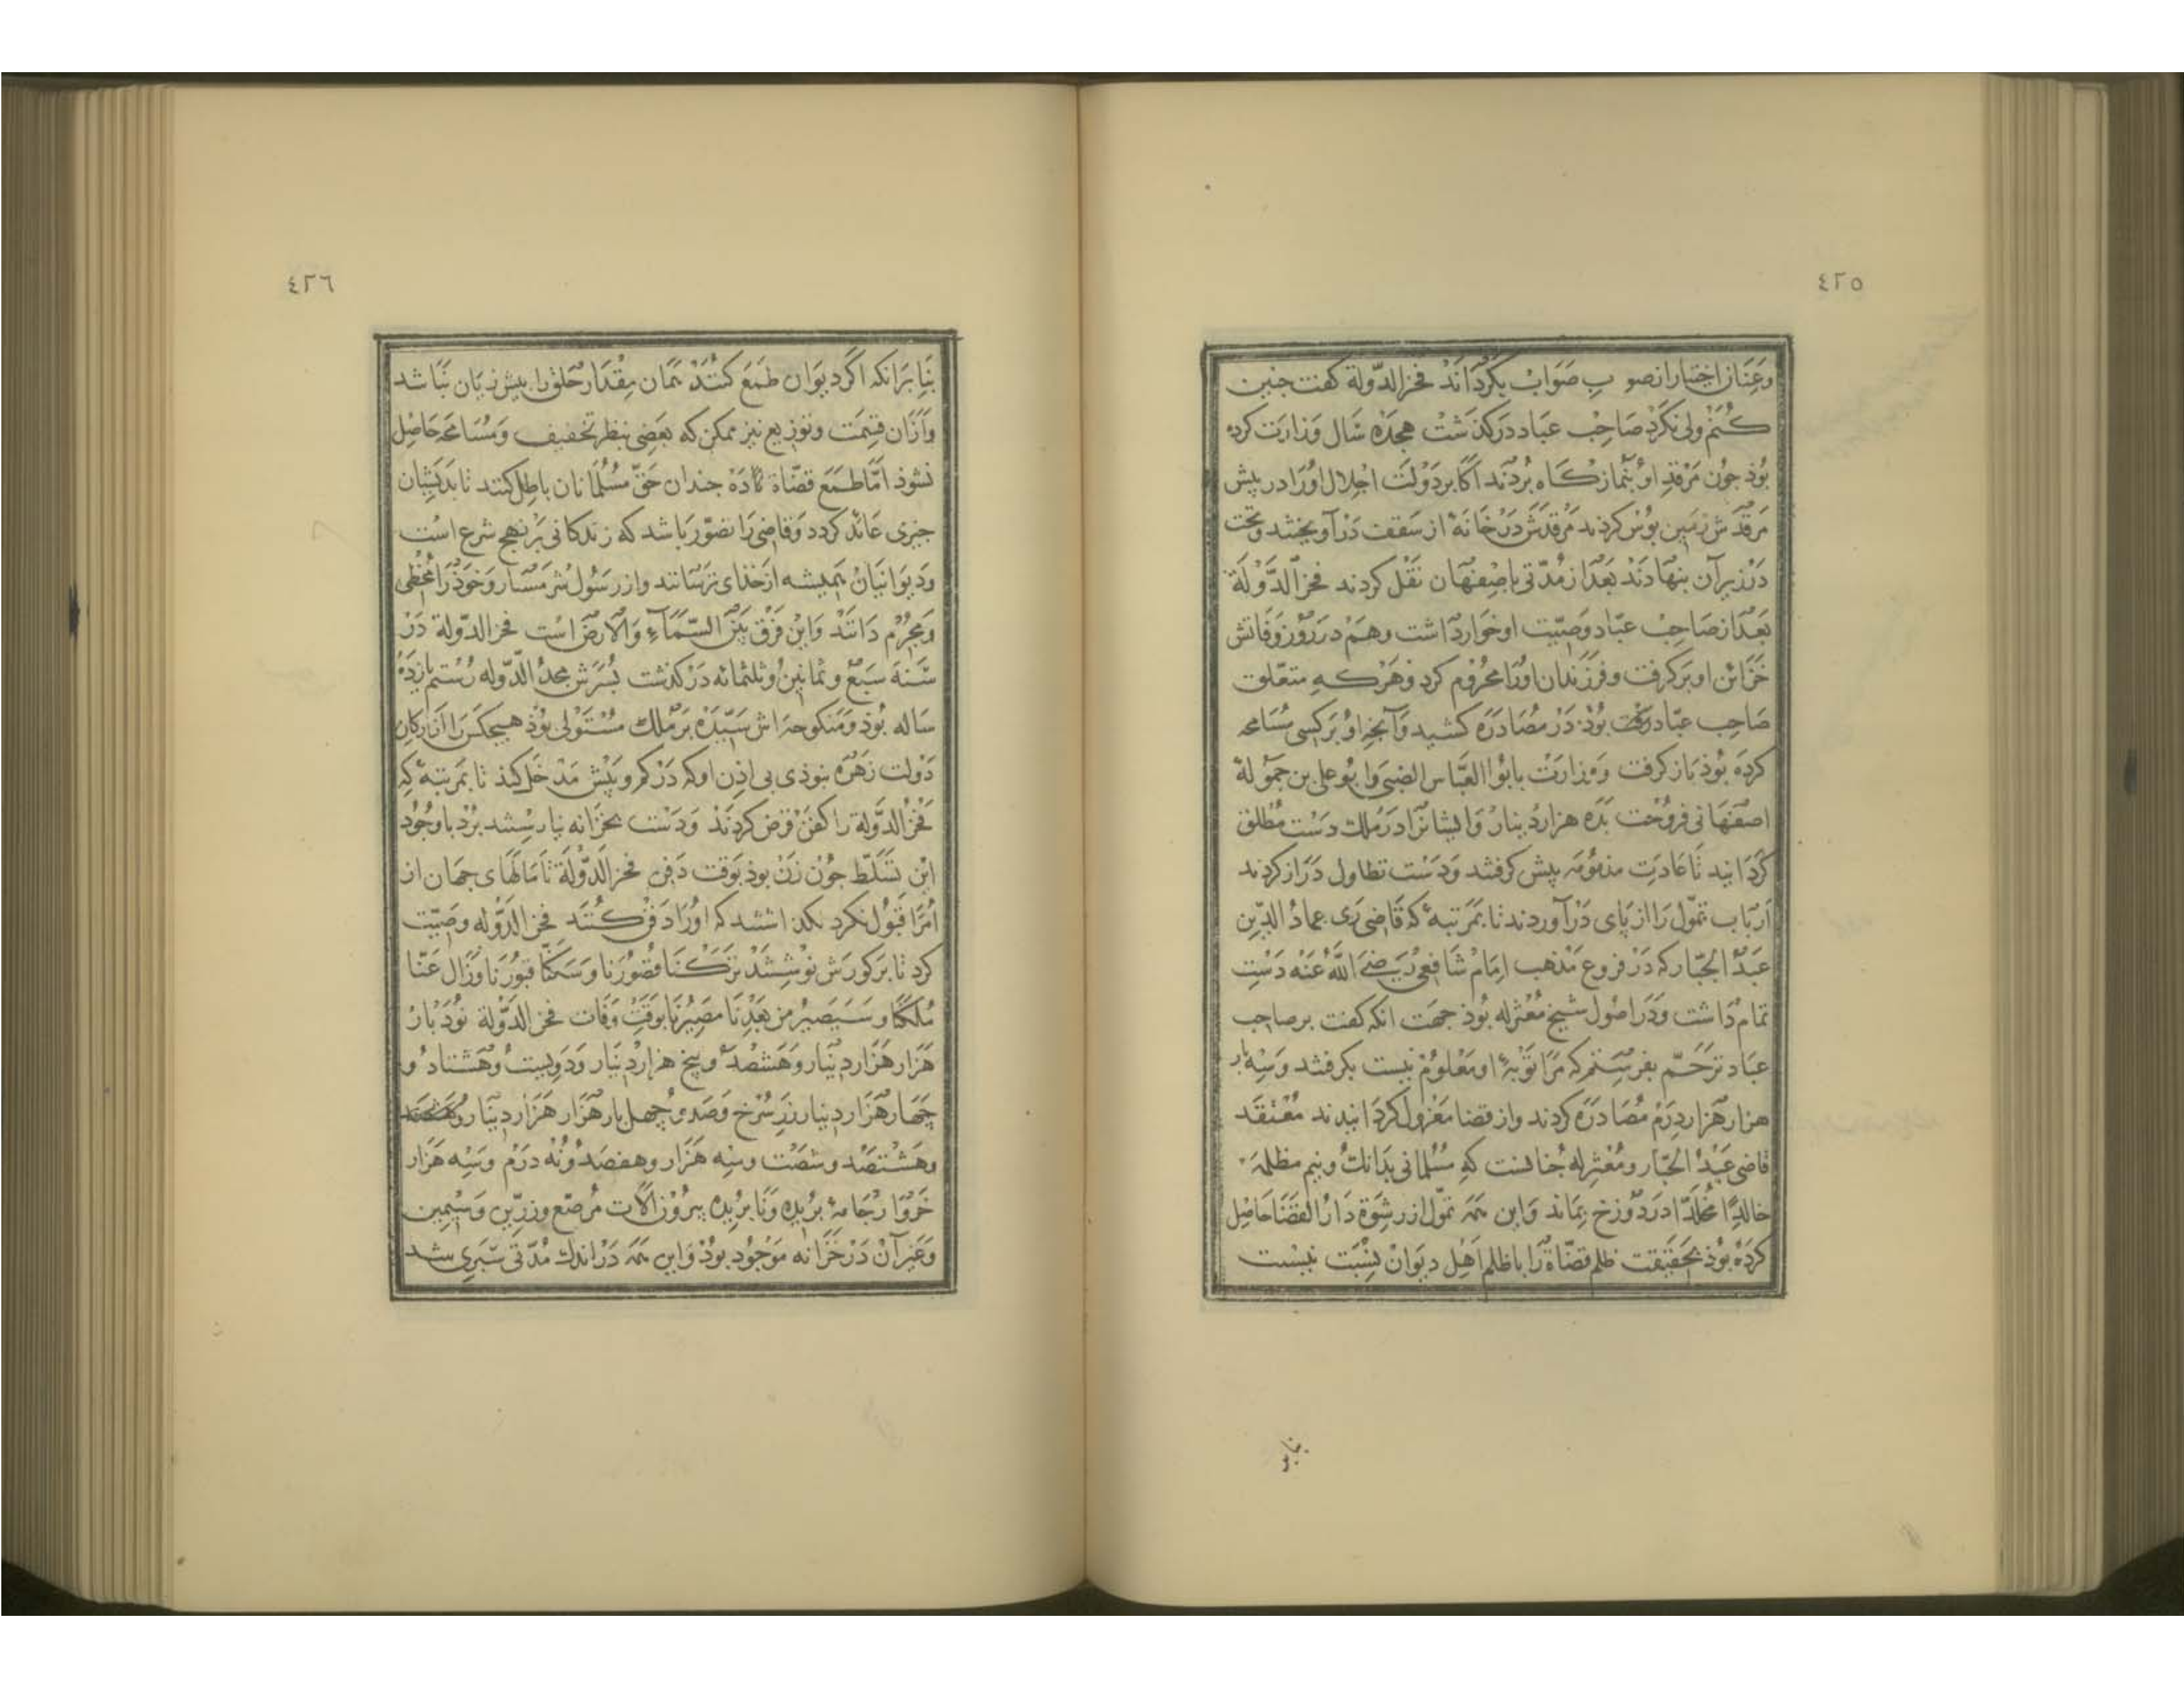 ٤٢٥
وعنان اختیار از صوب صواب بگرداند فخر الدّولة کفت جنین
کنم ولی نکرد صاحب عباد درکذشت هجده سال وزارت کرده
بوذ جون مرقد او بنمازکاه بردند اکابر دولت اجلال اورا در پیش
مرقدش زمین بوس کردند مرقدش در خانهٔ از سقف درآویختند وتخت
در زیر آن بنهادند بعد از مدّتی باصفهان نقل کردند فخر الدّولة
بعد از صاحب عبّاد وصیّت او خوار داشت وهم در روز وفاتش
خزائن او برکرفت وفرزندان اورا محروم کرد وهرکه متعلّق
صاحب عبّاد بوذ در مصادره کشید وآنچه او بر کسی مسامحه
کرده بوذ باز کرفت ووزارت بابوا العبّاس الضبی وابو علی بن حموله
اصفهانی فروخت بده هزار دینار وایشانرا در ملک دست مطلق
کردانید تا عادت مذمومه پیش کرفتند ودست تطاول دراز کردند
ارباب تموّل را از پای درآوردند تا بمرتبهٔ که قاضی ری عماد الدّین
عبد الجبّار که در فروع مذهب امام شافعی رضی الله عنه دست
تمام داشت ودر اصول شیخ معتزله بوذ جهت انکه کفت بر صاحب
عباد ترحّم نفرستم که مرا توبهٔ او معلوم نیست بکرفتند وسه بار
هزار هزار درم مصادره کردند واز قضا معزول کردانیدند معتقد
قاضی عبد الجبّار ومعتزله جنانست که مسلمانی بدانک ونیم مظلمه
خالدًا مخلّدًا در دوزخ بماند واین همه تموّل از رشوة دار القضا حاصل
کرده بوذ بحقیقت ظلم قضاة را با ظلم اهل دیوان نسبت نیست
بنابر
٤٢٦
بنابرانکه اکر دیوان طمع کنند همان مقدار خلق را بیش زیان نباشد
وازان قسمت وتوزیع نیز ممکن که بعضی بنظر تخفیف ومسامحه حاصل
نشوذ امّا طمع قضاة جندان حقّ مسلمانان باطل کنند تا بدیشان
جیزی عائد کردد وقاضی را تصوّر باشد که زندکانی بر نهج شرع است
ودیوانیان همیشه از خذای ترسانند واز رسول شرمسار وخوذرا مخطی
ومجرم دانند واین فرق بین السّمآء والارض است فخر الدّولة در
سنة سبع وثمانین وثلثمائه درکذشت پسرش مجد الدّوله رستم یازده
ساله بوذ ومنکوحه اش سیّده بر ملک مستولی بوذ هیچکس را از ارکان
دولت زهره نبوذی بی اذن او که در کم وبیش مدخل کند تا بمرتبهٔ که
فخر الدّولة را کفن قرض کردند ودست بخزانه نیارستند برد باوجود
این تسلّط جون زن بوذ بوقت دفن فخر الدّولة تا مالهای جهان از
امرا قبول نکرد نکذاشتند که اورا دفن کنند فخر الدّوله وصیّت
کرد تا بر کورش نوشتند ترکنا قصورنا وسکنّا قبورنا وزال عنّا
ملکنا وسیصیر من بعدنا مصیرنا بوقت وفات فخر الدّولة نود بار
هزار هزار دینار وهشتصد وپنج هزار دینار ودویست وهشتاد و
جهار هزار دینار زر سرخ وصد و جهل بار هزار هزار دینار
وهشتصد وشصت وسه هزار وهفصد ونه درم وسه هزار
خروار جامهٔ بریده ونا بریده بیرون الات مرصّع وزرّین وسیمین
وغیر آن در خزانه موجود بوذ واین همه در اندک مدّتی سپری شد